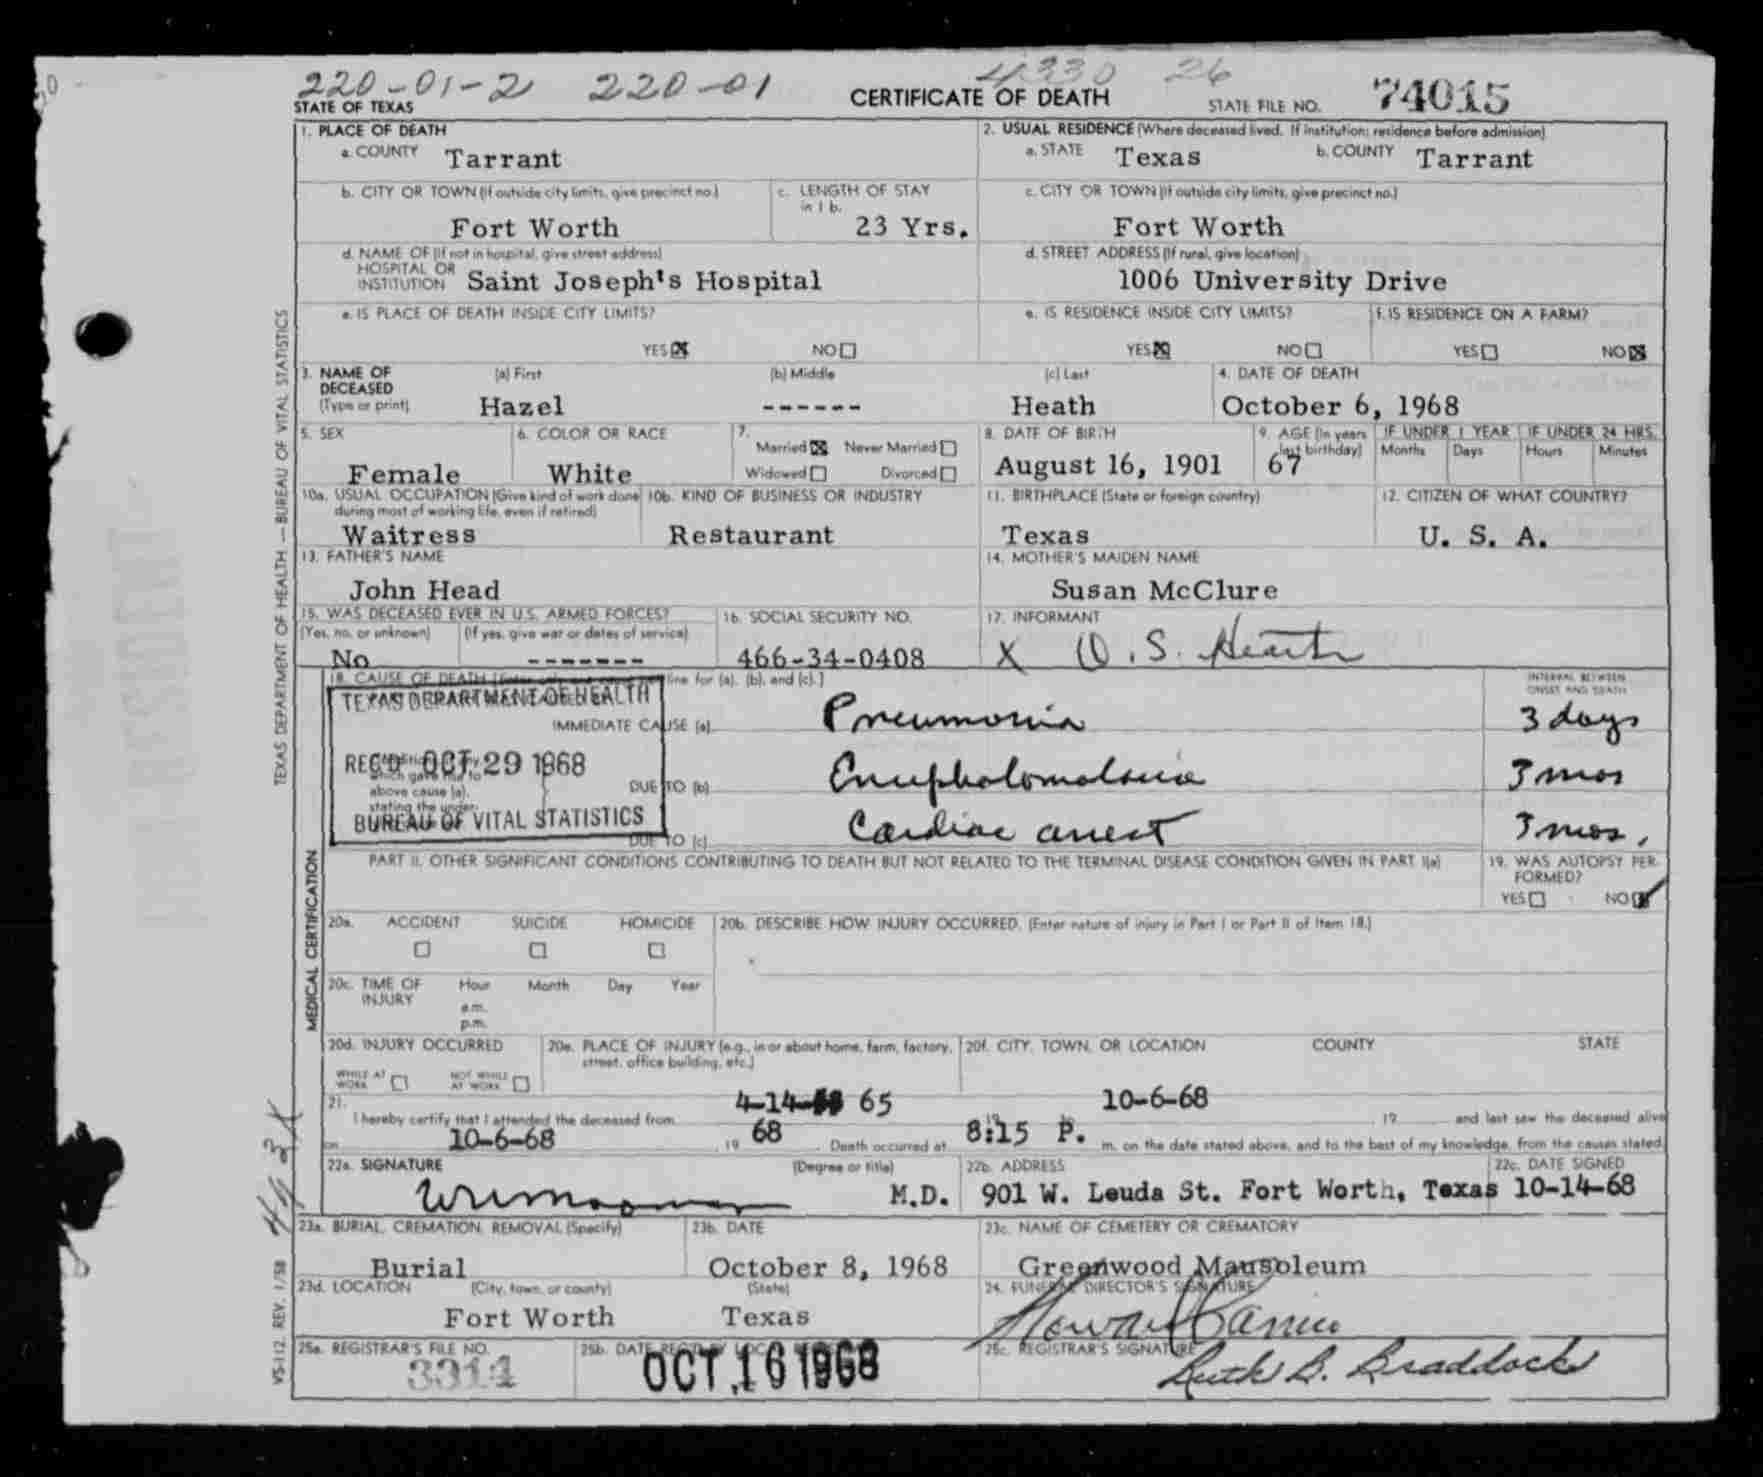 220-01-2 220-01 4330 26
STATE OF TEXAS CERTIFICATE OF DEATH STATE FILE NO. 74015
1. PLACE OF DEATH
a. COUNTY Tarrant
2. USUAL RESIDENCE (Where deceased lived. If institution: residence before admission)
a. STATE Texas b. COUNTY Tarrant
b. CITY OR TOWN (If outside city limits, give precinct no.)
Fort Worth
c. LENGTH OF STAY
in 1 b.
23 Yrs.
c. CITY OR TOWN (If outside city limits, give precinct no.)
Fort Worth
d. NAME OF (If not in hospital, give street address)
HOSPITAL OR
INSTITUTION Saint Joseph's Hospital
d. STREET ADDRESS (If rural, give location)
1006 University Drive
e. IS PLACE OF DEATH INSIDE CITY LIMITS?
YES NO
e. IS RESIDENCE INSIDE CITY LIMITS?
YES NO
f. IS RESIDENCE ON A FARM?
YES NO
3. NAME OF
DECEASED
(Type or print)
(a) First
Hazel
(b) Middle
------
(c) Last
Heath
4. DATE OF DEATH
October 6, 1968
5. SEX
Female
6. COLOR OR RACE
White
7.
Married Never Married
Widowed Divorced
8. DATE OF BIRTH
August 16, 1901
9. AGE (In years
last birthday)
67
IF UNDER 1 YEAR
Months Days
IF UNDER 24 HRS.
Hours Minutes
10a. USUAL OCCUPATION (Give kind of work done
during most of working life, even if retired)
Waitress
10b. KIND OF BUSINESS OR INDUSTRY
Restaurant
11. BIRTHPLACE (State or foreign country)
Texas
12. CITIZEN OF WHAT COUNTRY?
U. S. A.
13. FATHER'S NAME
John Head
14. MOTHER'S MAIDEN NAME
Susan McClure
15. WAS DECEASED EVER IN U.S. ARMED FORCES?
(Yes, no, or unknown) (If yes, give war or dates of service)
No -------
16. SOCIAL SECURITY NO.
466-34-0408
17. INFORMANT
X O. S. Heath
18. CAUSE OF DEATH line for (a), (b), and (c).]
INTERVAL BETWEEN
ONSET AND DEATH
TEXAS DEPARTMENT OF HEALTH
REC'D OCT 29 1968
BUREAU OF VITAL STATISTICS
IMMEDIATE CAUSE (a) Pneumonia 3 days
which gave rise to
above cause (a),
stating the under-
DUE TO (b) Encephalomalacia 3 mos
DUE TO (c) Cardiac arrest 3 mos.
PART II. OTHER SIGNIFICANT CONDITIONS CONTRIBUTING TO DEATH BUT NOT RELATED TO THE TERMINAL DISEASE CONDITION GIVEN IN PART I(a)
19. WAS AUTOPSY PER-
FORMED?
YES NO
20a. ACCIDENT SUICIDE HOMICIDE
20b. DESCRIBE HOW INJURY OCCURRED. (Enter nature of injury in Part I or Part II of Item 18.)
20c. TIME OF
INJURY
Hour Month Day Year
a.m.
p.m.
20d. INJURY OCCURRED
WHILE AT
WORK
NOT WHILE
AT WORK
20e. PLACE OF INJURY (e.g., in or about home, farm, factory,
street, office building, etc.)
20f. CITY, TOWN, OR LOCATION COUNTY STATE
21.
I hereby certify that I attended the deceased from 4-14- 65 19 10-6-68 , 19 and last saw the deceased alive
on 10-6-68 , 19 68 . Death occurred at 8:15 P. m. on the date stated above, and to the best of my knowledge, from the causes stated.
22a. SIGNATURE (Degree or title)
M.D.
22b. ADDRESS
901 W. Leuda St. Fort Worth, Texas
22c. DATE SIGNED
10-14-68
23a. BURIAL, CREMATION, REMOVAL (Specify)
Burial
23b. DATE
October 8, 1968
23c. NAME OF CEMETERY OR CREMATORY
Greenwood Mausoleum
23d. LOCATION (City, town, or county) (State)
Fort Worth Texas
24. FUNERAL DIRECTOR'S SIGNATURE
25a. REGISTRAR'S FILE NO.
3314
25b. DATE REC'D BY LOCAL
OCT 16 1968
25c. REGISTRAR'S SIGNATURE
Ruth B. Braddock
TEXAS DEPARTMENT OF HEALTH — BUREAU OF VITAL STATISTICS
MEDICAL CERTIFICATION
VS-112 REV. 1/58